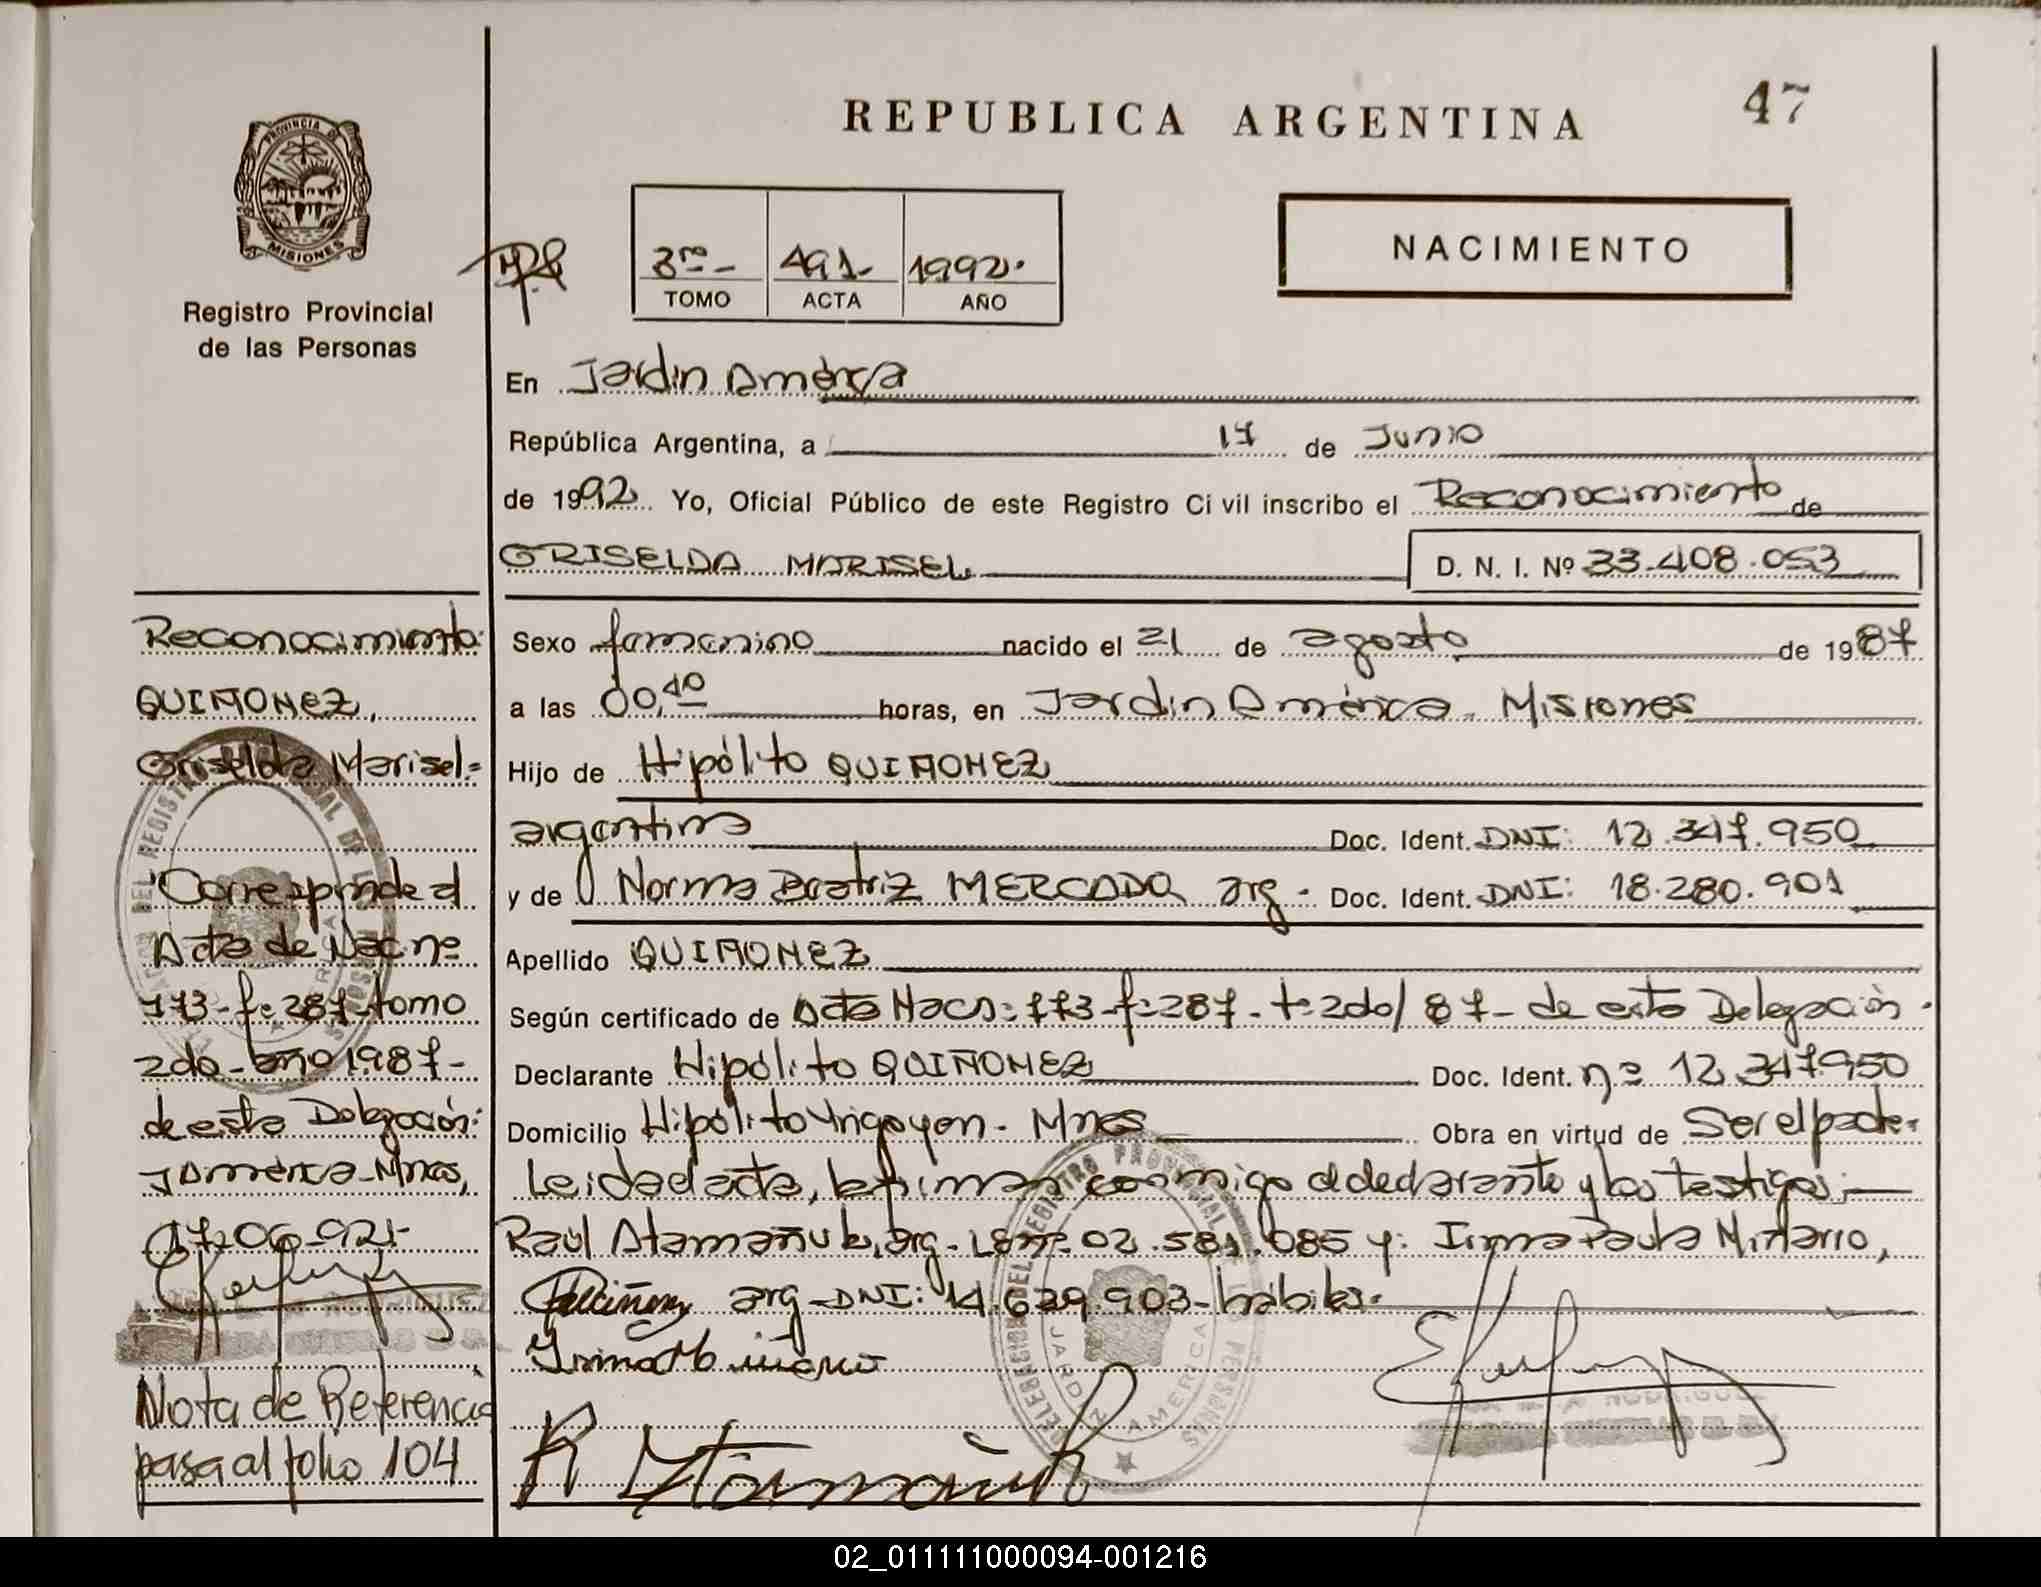 REPUBLICA ARGENTINA
47
PROVINCIA DE
MISIONES
Registro Provincial
de las Personas
3ro - 491- 1992.
TOMO ACTA AÑO
NACIMIENTO
En Jardin América
República Argentina, a 17 de Junio
de 1992 Yo, Oficial Público de este Registro Ci vil inscribo el Reconocimiento de
GRISELDA MARISEL D. N. I. Nº 33.408.053
Sexo femenino nacido el 21 de agosto de 1987
a las 00,40 horas, en Jardin América. Misiones
Hijo de Hipólito QUIÑONEZ
argentina Doc. Ident. DNI: 12.347.950
y de Norma Beatriz MERCADO arg - Doc. Ident. DNI: 18.280.901
Apellido QUIÑONEZ
Según certificado de Acta Nacn: 773-f=287- t=2do/87- de esta Delegación.
Declarante Hipólito QUIÑONEZ Doc. Ident. nº 12.347950
Domicilio Hipólito Yrigoyen - Mnes Obra en virtud de Ser el padre.
Leida el acta, la firman conmigo el declarante y los testigos:
Raúl Atamañuk, arg. LE nº 02.581.085 y: Irma Paula Miñario,
arg - DNI: 14.629.903- hábiles.
Reconocimiento:
QUIÑONEZ,
Griselda Marisel=
"Corresponde al
Acta de Nac nº
773- f= 287-tomo
2do - año 1987-
de esta Delegación:
J América - Mnes,
17-06-92-
Nota de Referencia
pasa al folio 104
JARDIN AMERICA
02_011111000094-001216